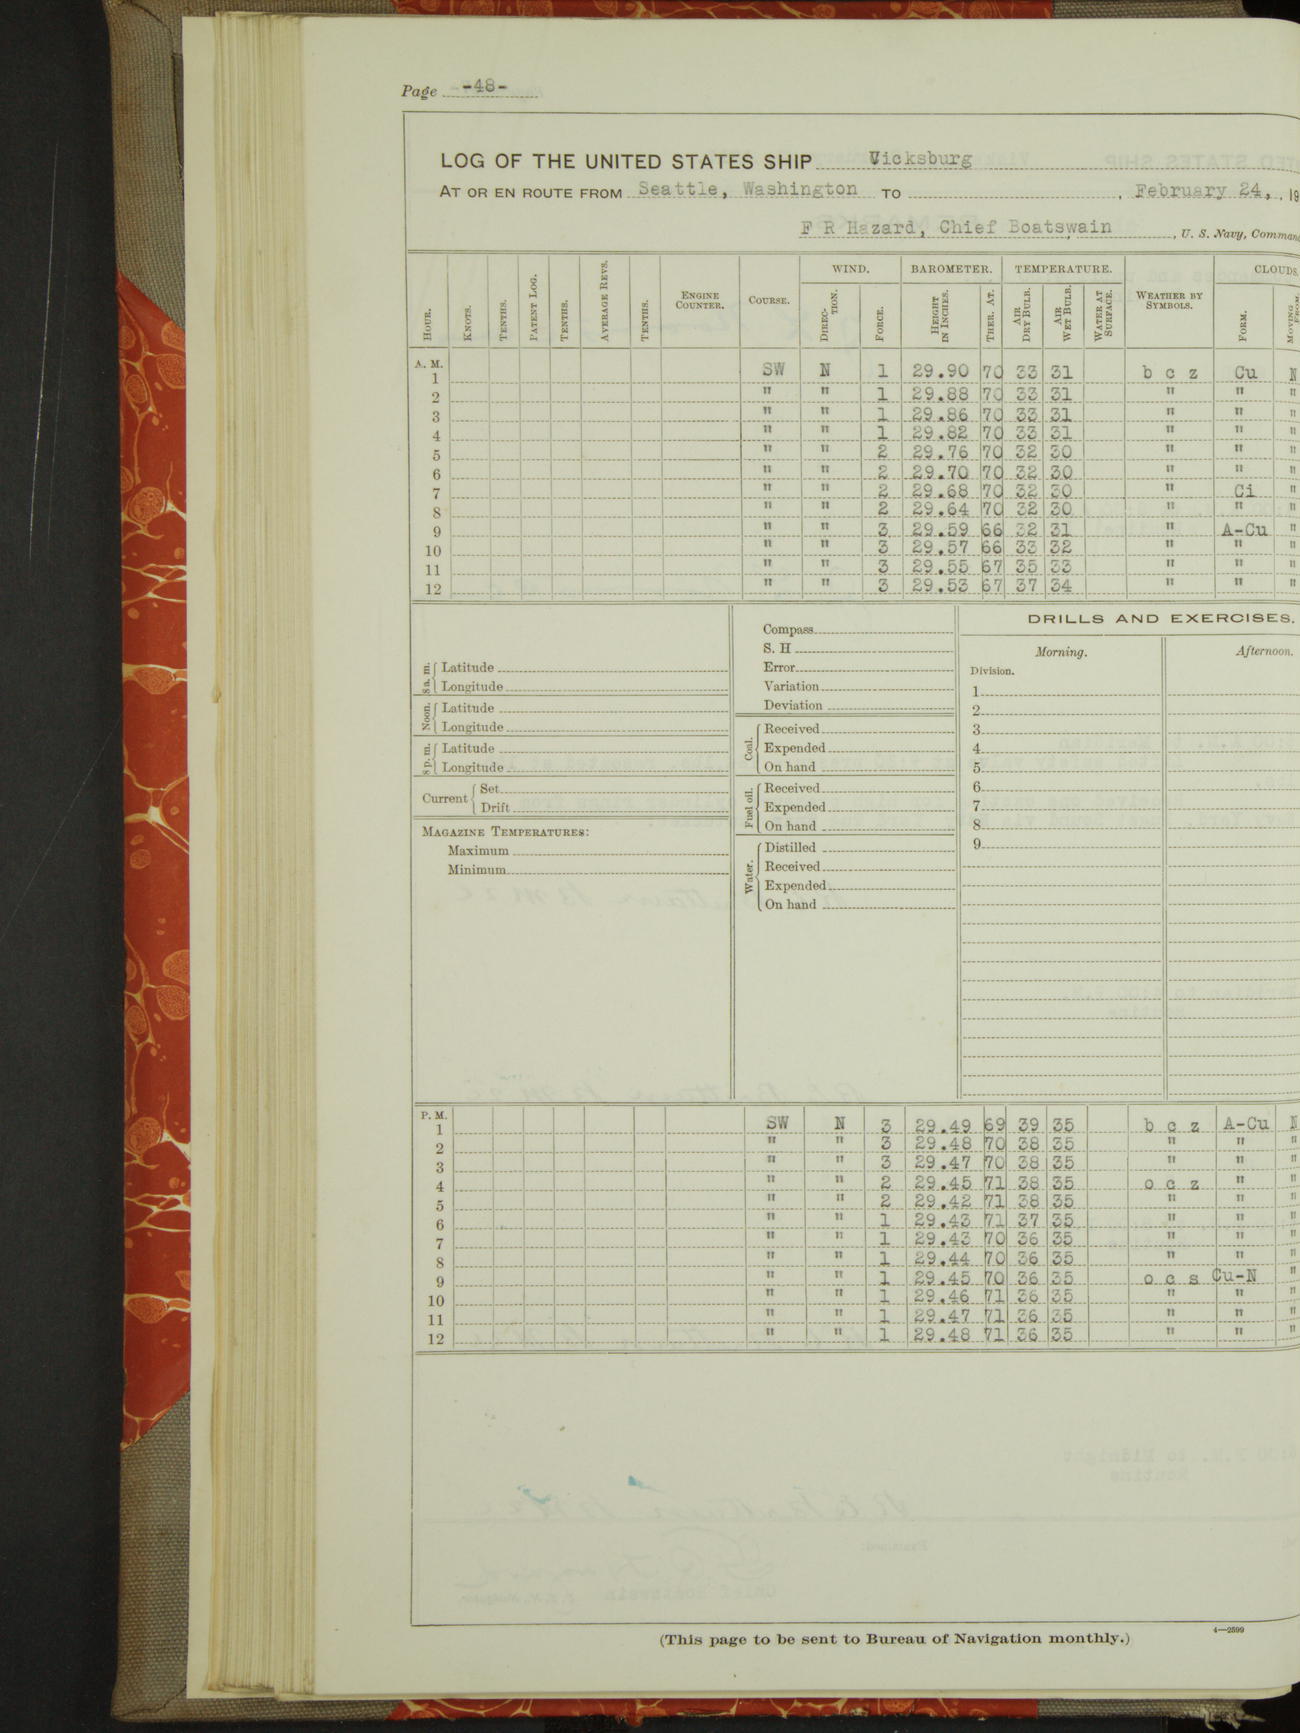 Page -48-
LOG OF THE UNITED STATES SHIP Vicksburg
AT OR EN ROUTE FROM Seattle, Washington TO , February 24, , 19
F R Hazard, Chief Boatswain , U. S. Navy, Comman
HOUR. KNOTS. TENTHS. PATENT LOG. TENTHS. AVERAGE REVS. TENTHS. ENGINE COUNTER. COURSE. WIND. DIRECTION. FORCE. BAROMETER. HEIGHT IN INCHES. THER. AT. TEMPERATURE. AIR DRY BULB. AIR WET BULB. WATER AT SURFACE. WEATHER BY SYMBOLS. CLOUDS. FORM. MOVING FROM.
A. M.
1 SW N 1 29.90 70 33 31 b c z Cu N
2 " " 1 29.88 70 33 31 " " "
3 " " 1 29.86 70 33 31 " " "
4 " " 1 29.82 70 33 31 " " "
5 " " 2 29.76 70 32 30 " " "
6 " " 2 29.70 70 32 30 " " "
7 " " 2 29.68 70 32 30 " Ci "
8 " " 2 29.64 70 32 30 " " "
9 " " 3 29.59 66 32 31 " A-Cu "
10 " " 3 29.57 66 33 32 " " "
11 " " 3 29.55 67 35 33 " " "
12 " " 3 29.53 67 37 34 " " "
8 a. m. Latitude
Longitude
Noon. Latitude
Longitude
8 p. m. Latitude
Longitude
Current Set
Drift
MAGAZINE TEMPERATURES:
Maximum
Minimum
Compass
S. H
Error
Variation
Deviation
Coal. Received
Expended
On hand
Fuel oil. Received
Expended
On hand
Water. Distilled
Received
Expended
On hand
DRILLS AND EXERCISES.
Morning. Afternoon.
Division.
1
2
3
4
5
6
7
8
9
P. M.
1 SW N 3 29.49 69 39 35 b c z A-Cu N
2 " " 3 29.48 70 38 35 " " "
3 " " 3 29.47 70 38 35 " " "
4 " " 2 29.45 71 38 35 o c z " "
5 " " 2 29.42 71 38 35 " " "
6 " " 1 29.43 71 37 35 " " "
7 " " 1 29.43 70 36 35 " " "
8 " " 1 29.44 70 36 35 " " "
9 " " 1 29.45 70 36 35 o c s Cu-N "
10 " " 1 29.46 71 36 35 " " "
11 " " 1 29.47 71 36 35 " " "
12 " " 1 29.48 71 36 35 " " "
(This page to be sent to Bureau of Navigation monthly.)
4—2599